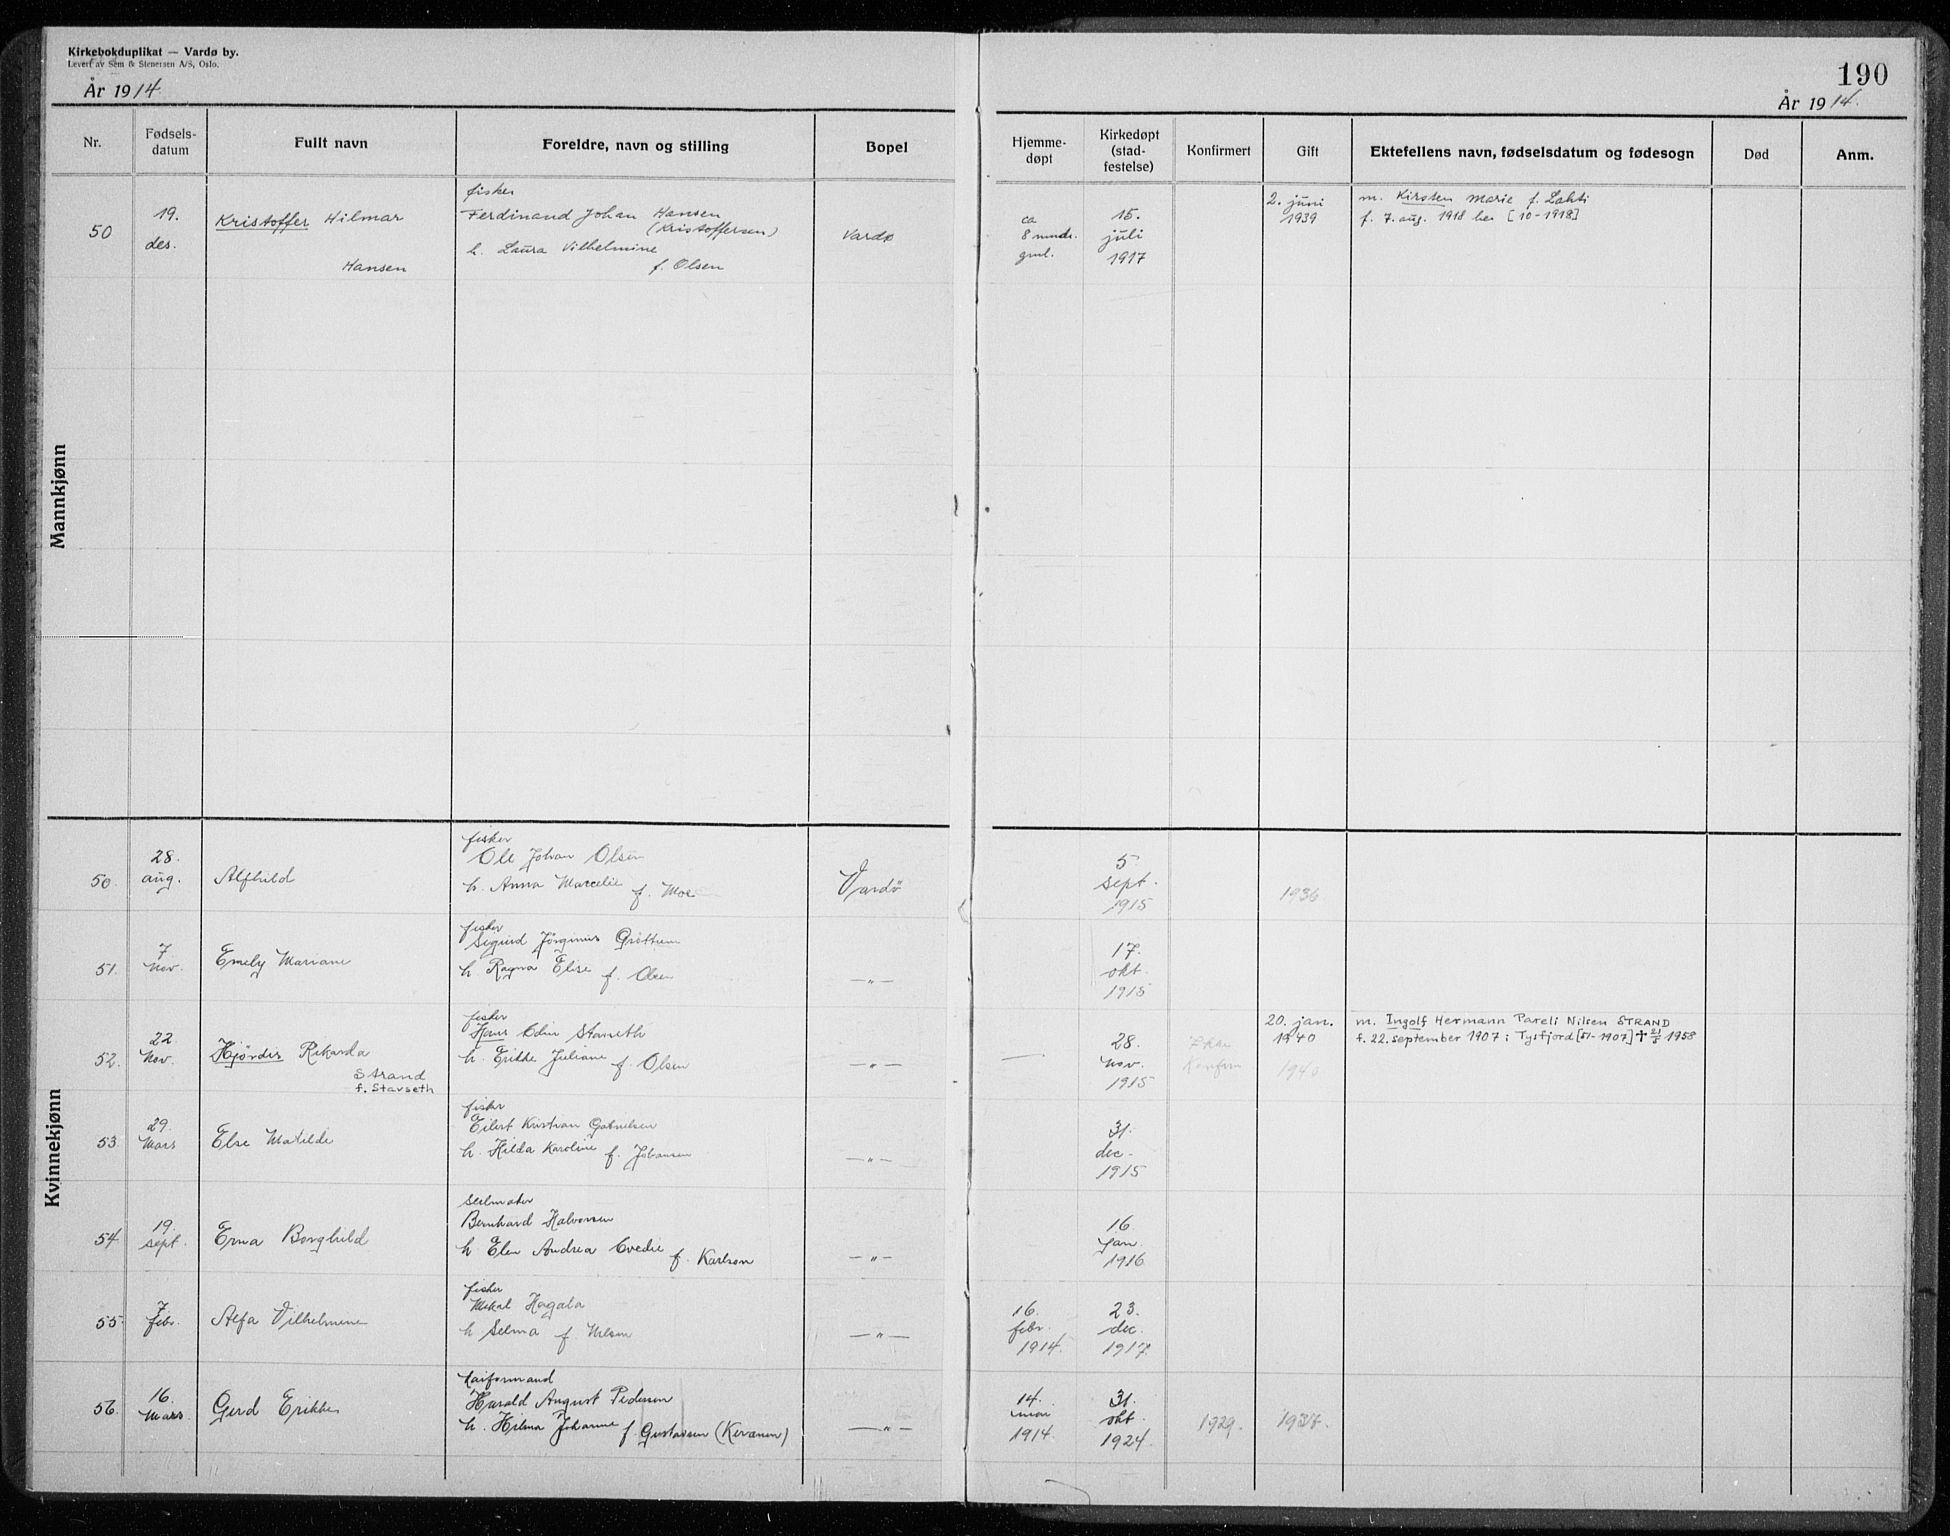 Kirkebokduplikat — Vardø by.
Levert av Sem & Stenersen A/S, Oslo.
År 1914
190
År 1914.
Nr.
Fødsels-
datum
Fullt navn
Foreldre, navn og stilling
Bopel
Hjemme-
døpt
Kirkedøpt
(stad-
festelse)
Konfirmert
Gift
Ektefellens navn, fødselsdatum og fødesogn
Død
Anm.
Mannkjønn
50
19.
des.
Kristoffer Hilmar
Hansen
fisker
Ferdinand Johan Hansen
(Kristoffersen)
h. Laura Vilhelmine
f. Olsen
Vardø
ca
8 mndr.
gml.
15.
juli
1917
2. juni
1939
m. Kirsten Marie f. Lahti
f. 7. aug. 1918 her [10-1918]
Kvinnekjønn
50.
28.
aug.
Alfhild
fisker
Ole Johan Olsen
h. Anna Marcelie f. Moe
Vardø
5.
sept.
1915
1936
51.
7
Nov.
Emely Mariane
fisker
Sigurd Jörginus Gröttum
h Ragna Elise f. Olsen
—"—
17.
okt.
1915
52.
22
Nov.
Hjördis Rikarda
Strand
f. Stavseth
fisker
Hans Edin Stavseth
h. Erikke Juliane f. Olsen
—"—
—
28.
nov.
1915
Ikke
konfirm
20. jan.
1940
1940
m. Ingolf Hermann Pareli Nilsen STRAND
f. 22. september 1907 i Tysfjord [51-1907] † 21/5 1958
53.
29.
Mars
Else Matilde
fisker
Eilert Kristian Gabrielsen
h. Hilda Karoline f. Johansen
—"—
31.
dec.
1915
54.
19.
sept.
Erna Borghild
Seilmaker
Bernhard Halvorsen
h Elen Andrea Evedie f. Karlson
—"—
16.
jan.
1916
55.
7
febr.
Alfa Vilhelmine
fisker
Mikal Hagala
h Selma f. Nilsen
—"—
16.
febr.
1914.
23.
dec.
1917.
56.
16.
Mars
Gerd Erikke
Kaiformand
Harald August Pedersen
h. Hilma Johanne f. Gustavsen (Kervanen)
—"—
14.
mai
1914.
31.
okt.
1924.
1929.
1937.